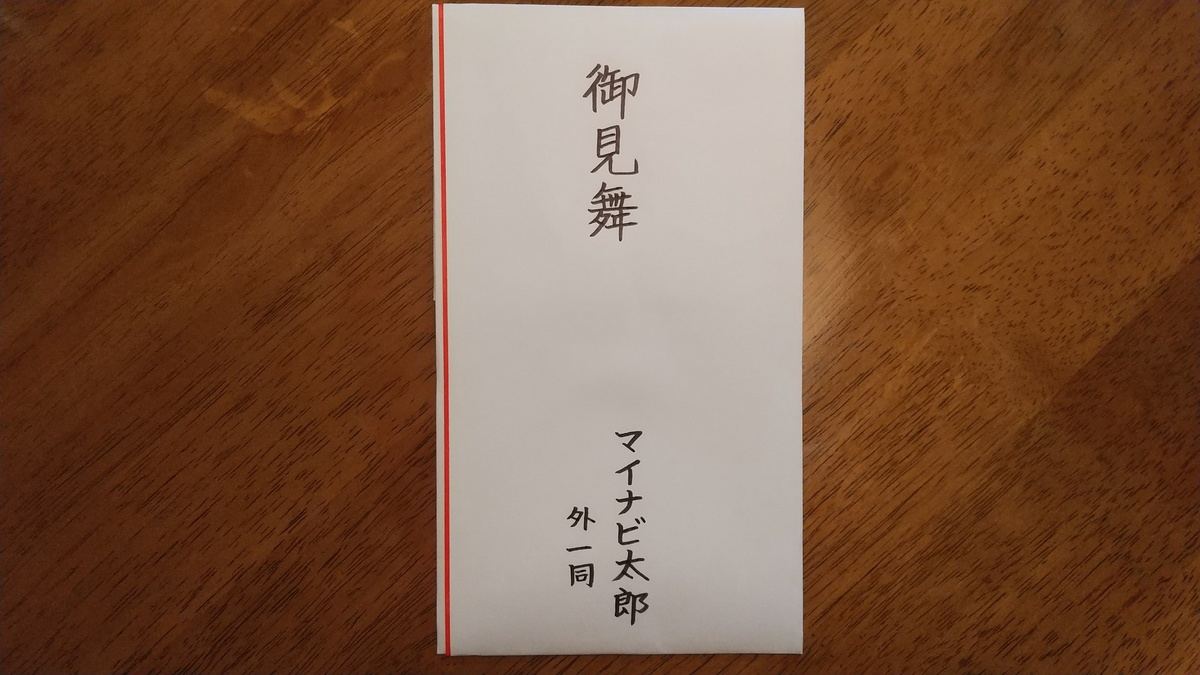 御見舞
マイナビ太郎
外一同